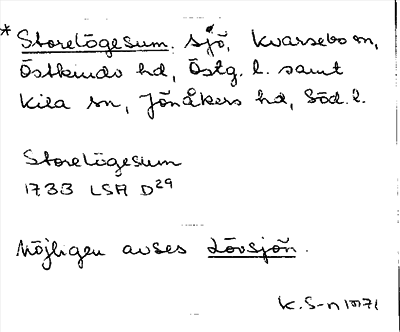 * Storelögesum. sjö, Kvarsebo sn,
Östkinds hd, Östg. l. samt
Kila sn, Jönåkers hd, Söd. l.
Storelögesum
1733 LSA D29
Möjligen avses Lövsjön.
K. S-n 1971